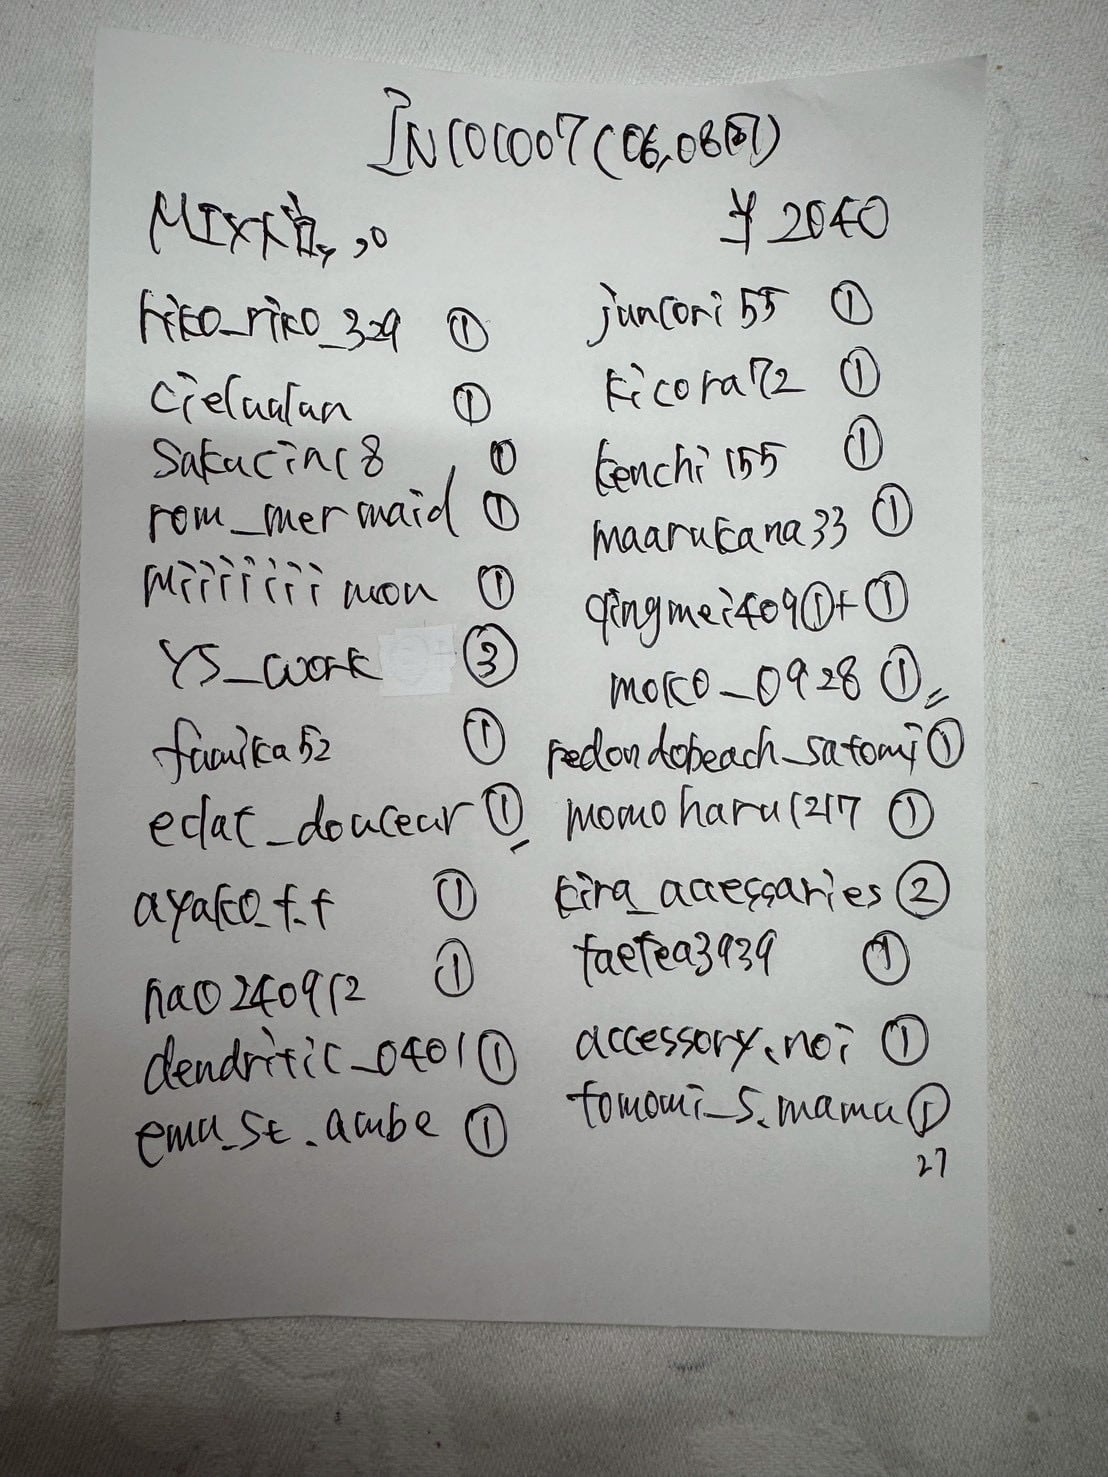 IN101007(06,08の)
MIX
¥2040
hiko_riko_329 ①
cielualan ①
sakucinc8 ①
rom_mermaid ①
miiiiiii mon ①
YS_work ③
fumika52 ①
eclat_douceur ①
ayako_f.f ①
nao240912 ①
dendritic_0401 ①
emu_st.ambe ①
juncori55 ①
kicora72 ①
kenchi155 ①
maarukana33 ①
qingmei409①+①
moko_0928 ①
redondobeach_satomi ①
momoharu1217 ①
kira_accessaries ②
taetea3939 ①
accessory.noi ①
tomomi_s.mama ①
27